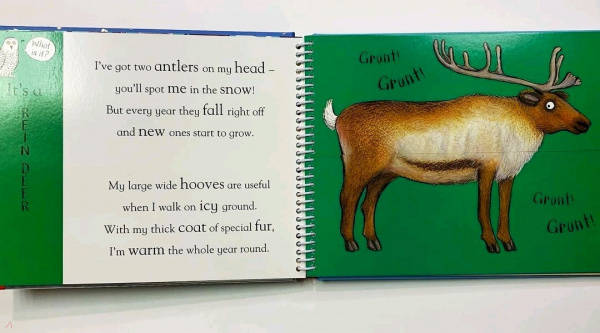 What
is it?
It's a
REINDEER
I've got two antlers on my head –
you'll spot me in the snow!
But every year they fall right off
and new ones start to grow.
My large wide hooves are useful
when I walk on icy ground.
With my thick coat of special fur,
I'm warm the whole year round.
Grunt!
Grunt!
Grunt!
Grunt!